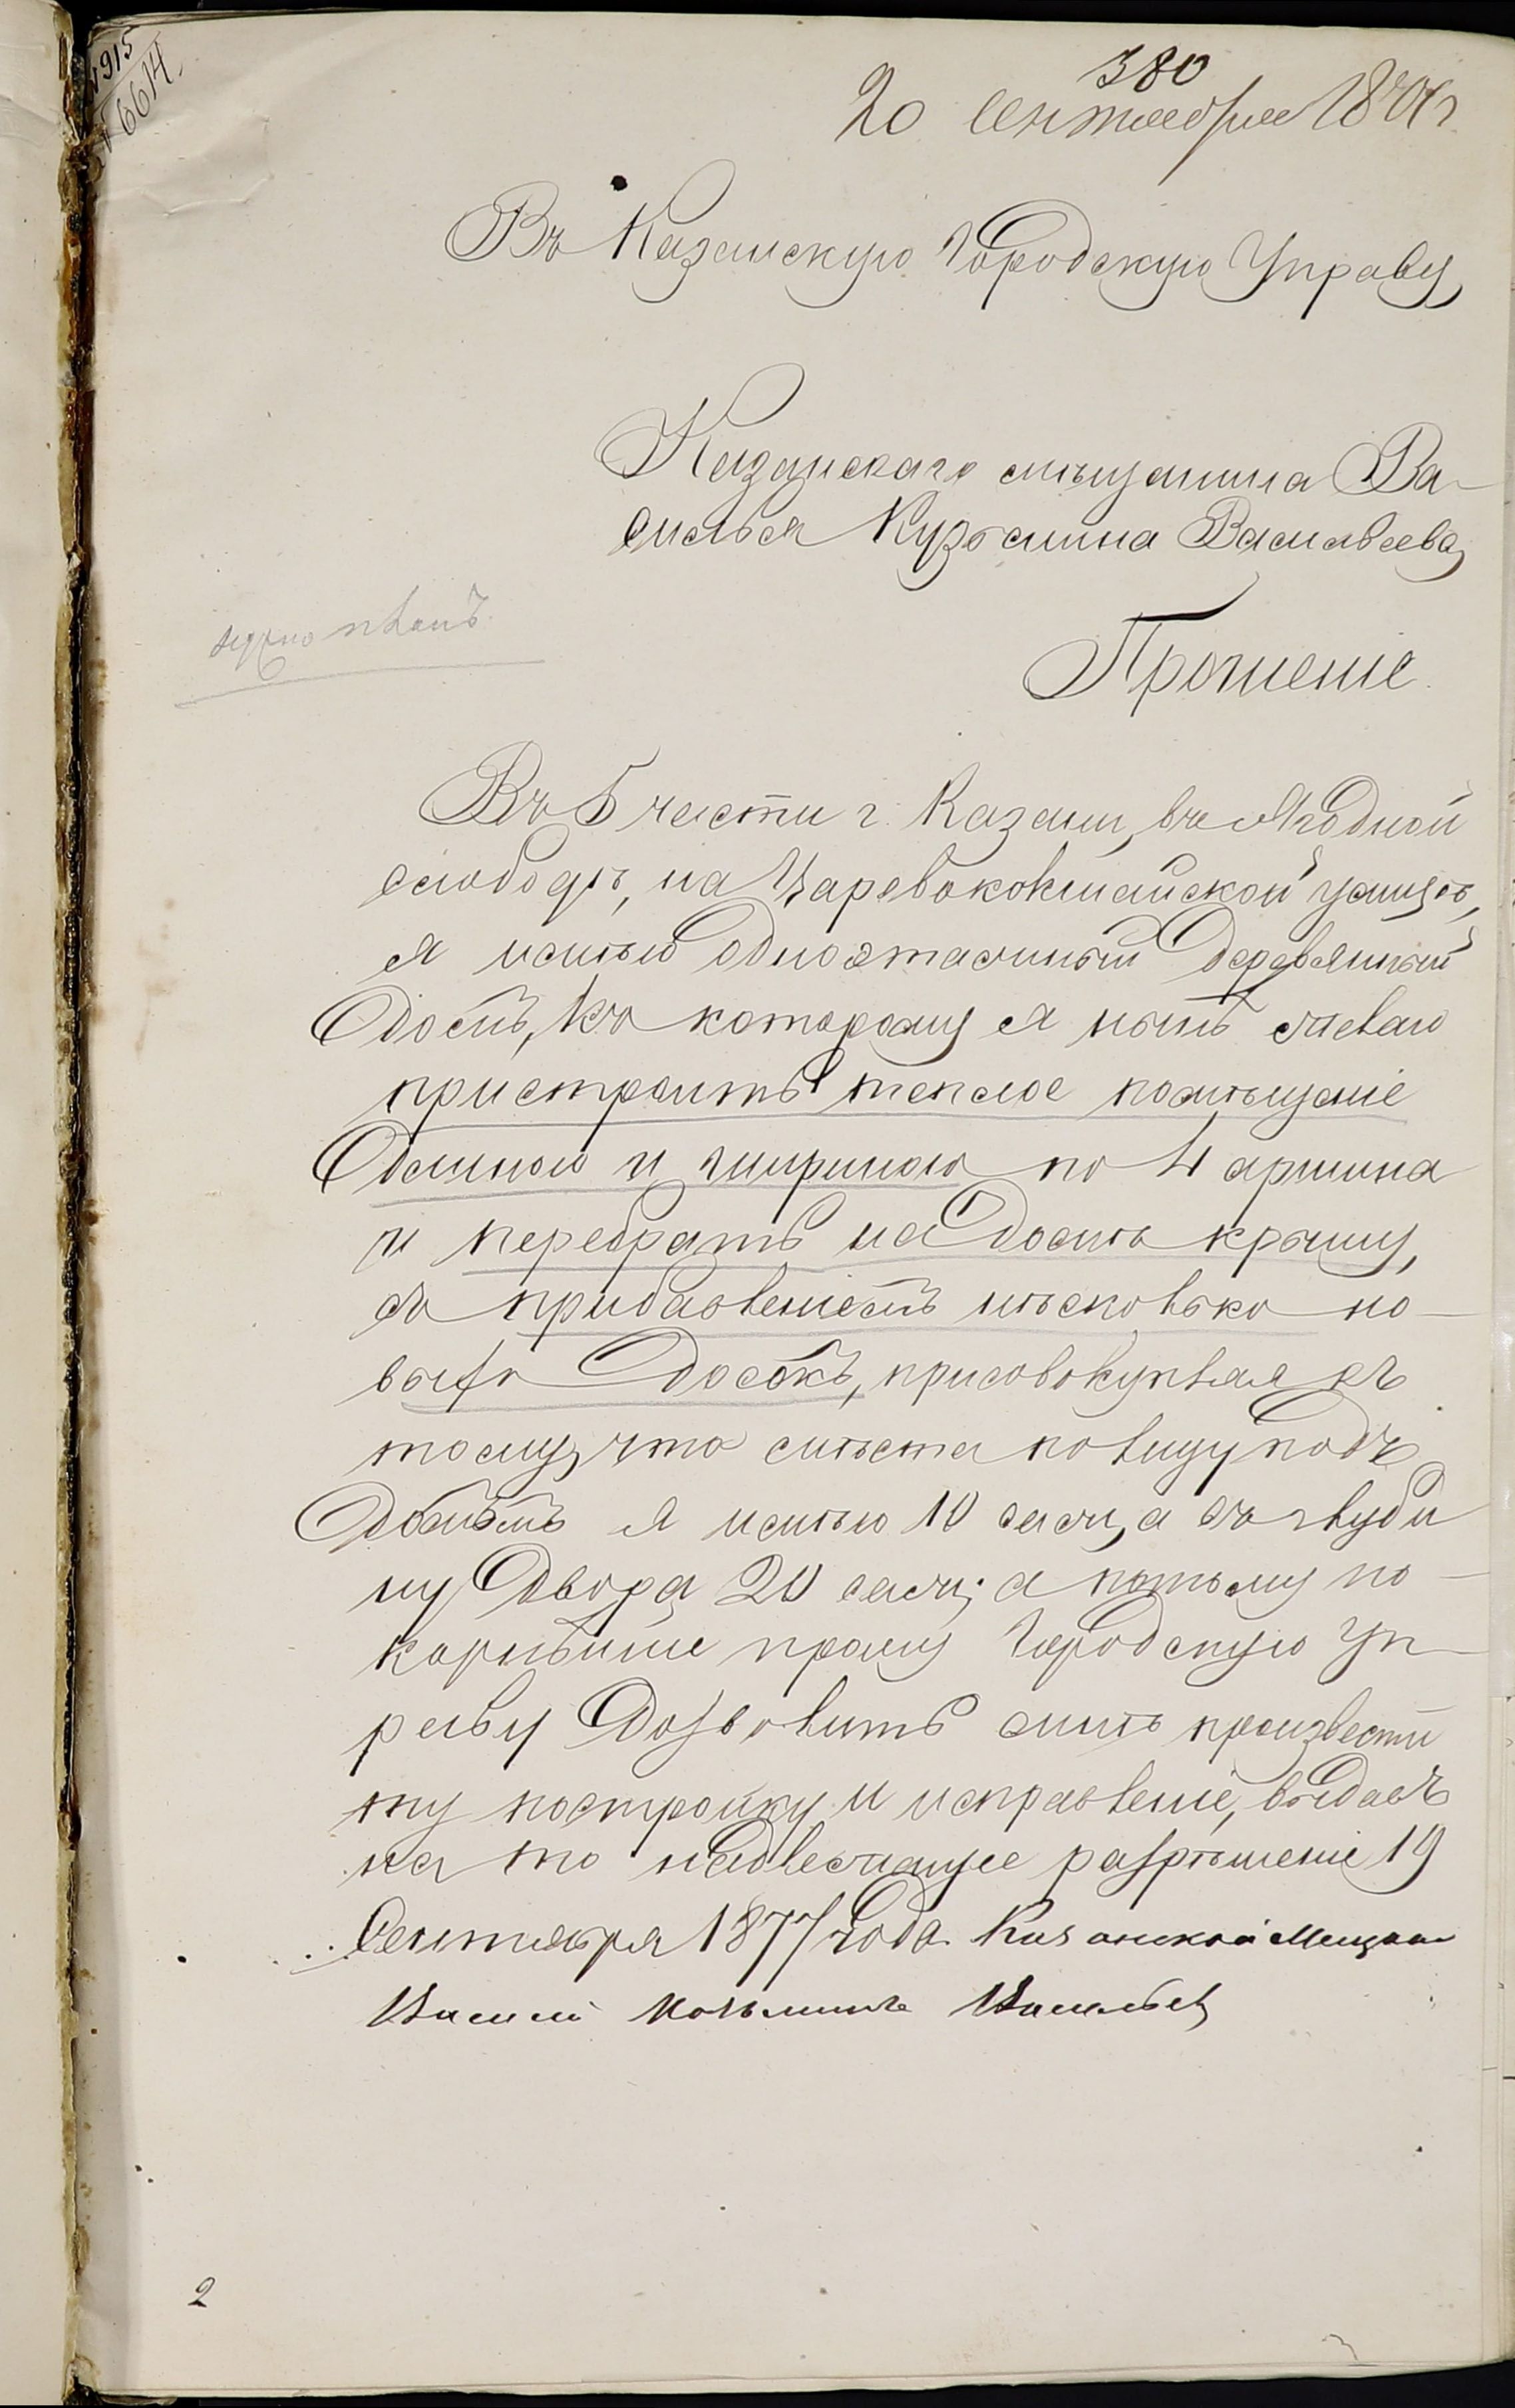 № 915
№ 6614.
380
20 сентября 1877 г
Въ Казанскую Городскую Управу
Казанскаго мѣщанина Ва-
силья Кузьмина Васильева
нуженъ планъ.
Прошеніе.
Въ 5 части г. Казани, въ Ягодной
слободѣ, на Царевококшайской улицѣ,
я имѣю одноэтажный деревянный
домъ, къ которому я нынѣ желаю
пристроить теплое помѣщеніе
длиною и шириною по 4 аршина
и перебрать на домѣ крышу,
съ прибавленіемъ нѣсколько но-
выхъ досокъ, присовокупляя къ
тому, что мѣста по лицу подъ
домомъ я имѣю 10 саж, а въ глуби
ну двора 20 саж; а потому по-
корнѣйше прошу Городскую Уп-
раву дозволить мнѣ произвести
ту постройку и исправленіе, выдавъ
на то надлежащее разрѣшеніе 19
Сентября 1877 года. Казанской Мещан
Василей Козьминъ Васильев
2